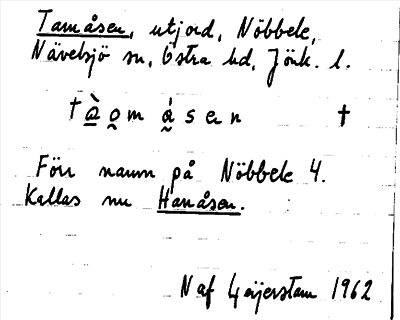 Tamåsen, utjord, Nöbbele,
Nävelsjö sn, Östra hd, Jönk. l.
† t à̲ o̰ m á̰ s e n †
Förr namn på Nöbbele 4.
Kallas nu Hamåsen.
N af Geijerstam 1962